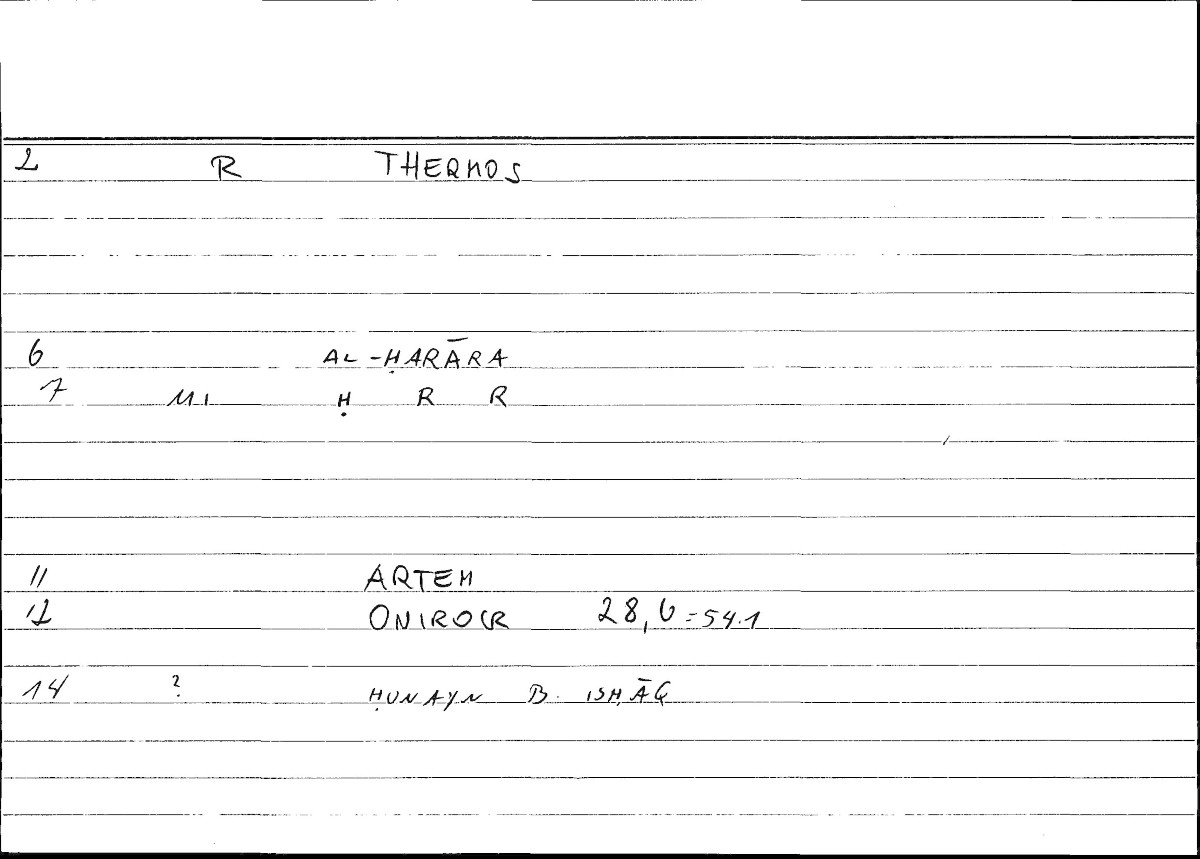 2 R THERMOS
6 AL-ḤARĀRA
7 MI Ḥ R R
11 ARTEM
12 ONIROCR 28,6=54.1
14 ? ḤUNAYN B. ISḤĀQ